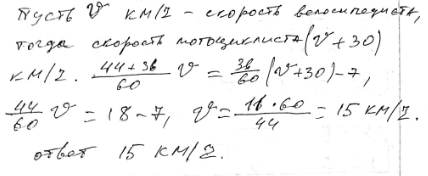 Пусть v км/ч - скорость велосипедиста,
тогда скорость мотоциклиста (v + 30)
км/ч. (44+36)/60 v = 36/60 (v+30) - 7,
44/60 v = 18 - 7, v = (11·60)/44 = 15 км/ч.
ответ 15 км/ч.